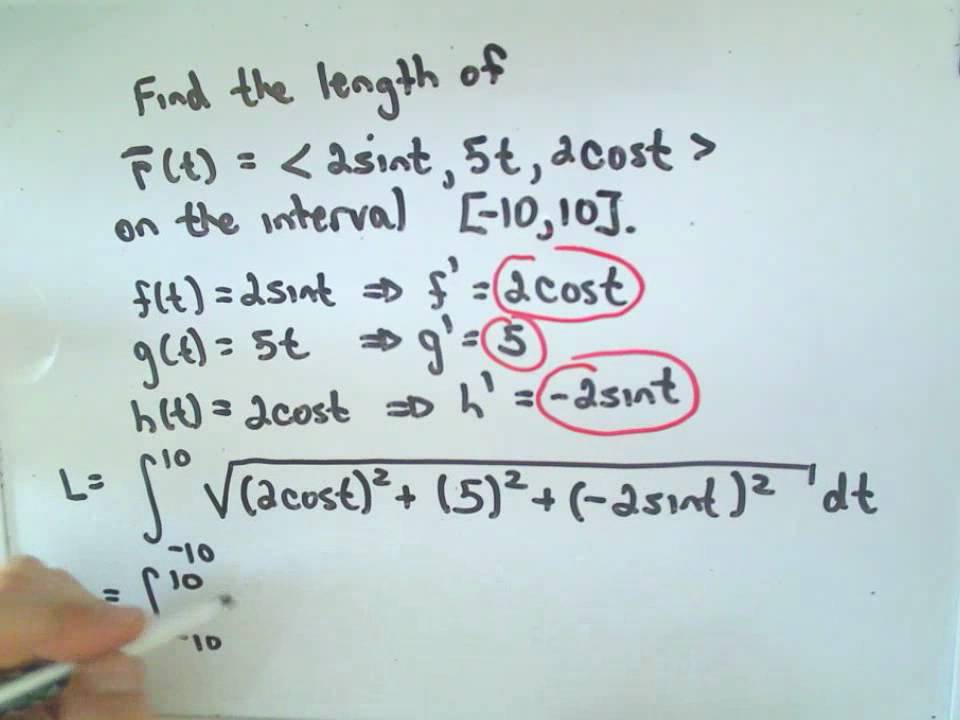 Find the length of
r̄(t) = < 2sint, 5t, 2cost >
on the interval [-10,10].
f(t) = 2sint ⇒ f' = 2cost
g(t) = 5t ⇒ g' = 5
h(t) = 2cost ⇒ h' = -2sint
L = ∫₋₁₀¹⁰ √((2cost)² + (5)² + (-2sint)²) dt
= ∫₋₁₀¹⁰